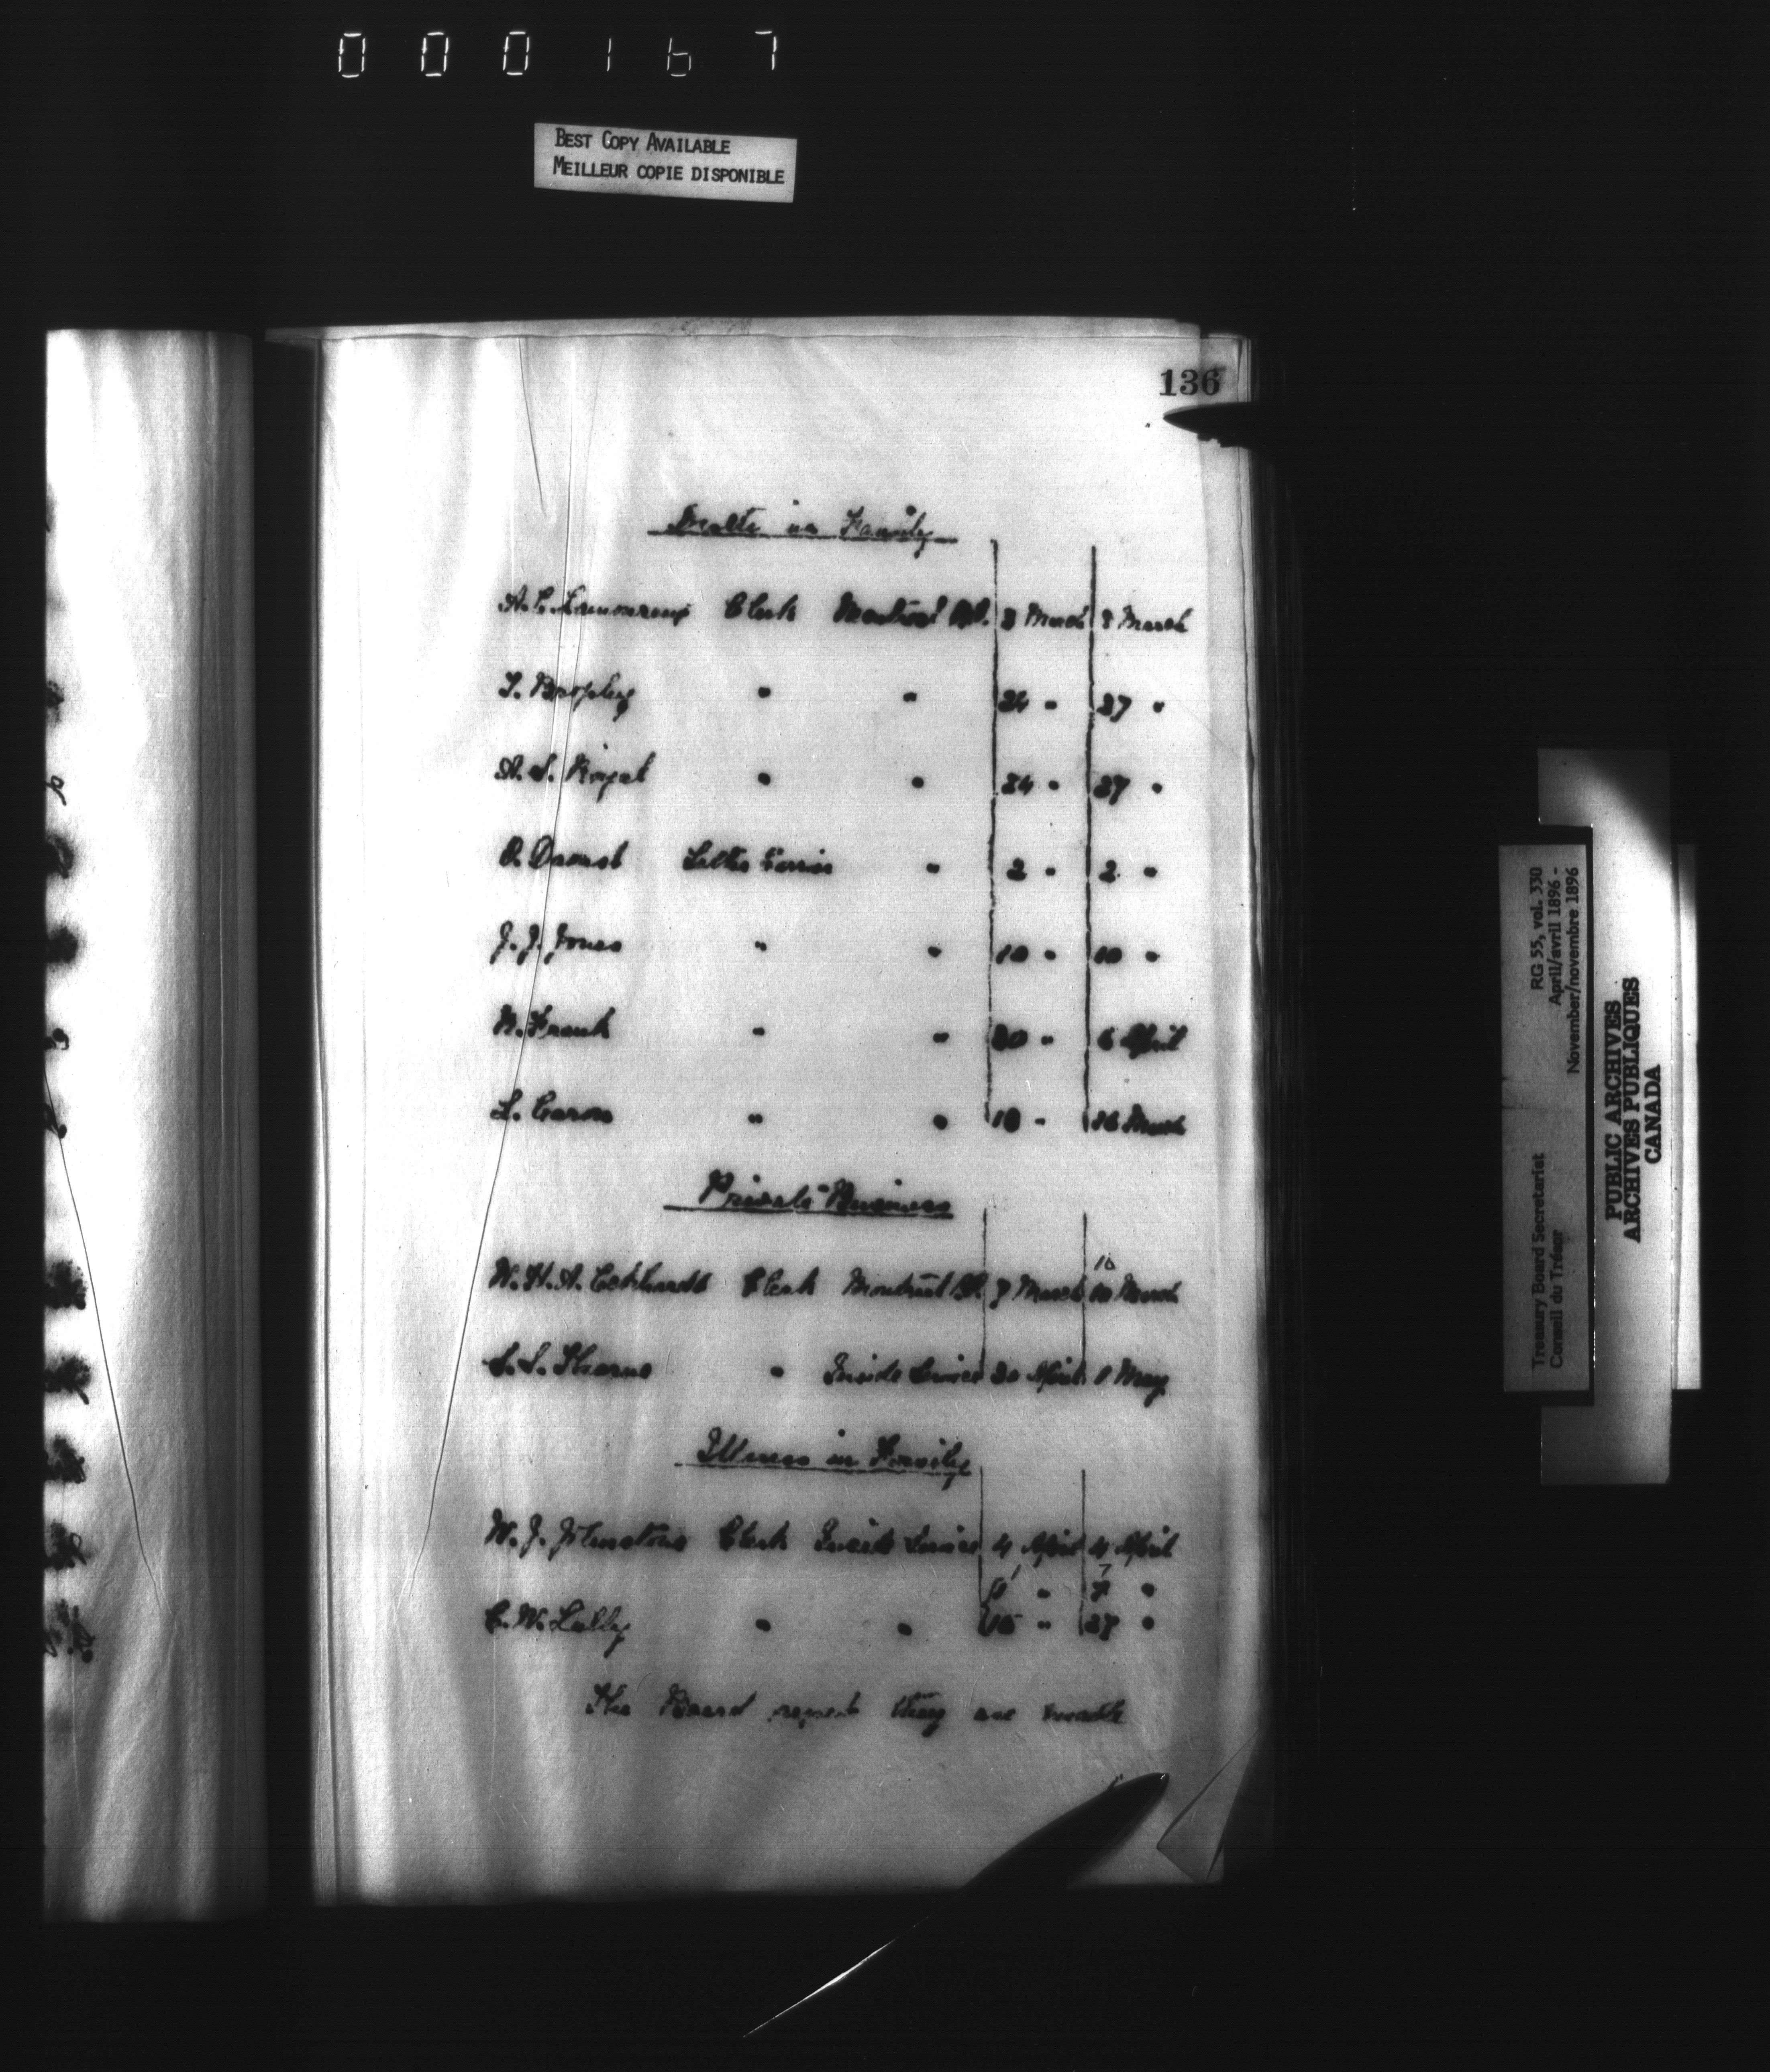 000167
BEST COPY AVAILABLE
MEILLEUR COPIE DISPONIBLE
136
Death in Family
Clerk Montreal P.O. 8 March 8 March
Brophy " " 24 " 27 "
" " 24 " 27 "
Letter Carrier " 2 " 2 "
J. J. Jones " " 10 " 10 "
Frank " " 30 " 6 April
L. Caron " " 10 " 16 March
Private Business
10
W. H. A. Eckhardt Clerk Montreal P.O. 7 March 10 March
" Inside Service 30 April 1 May
Illness in Family
W. J. Johnstone Clerk Inside Service 4 April 4 April
7
" 7 "
C. W. Lally " " 15 " 27 "
The Board
RG 55, vol. 330
April/avril 1896 -
November/novembre 1896
Treasury Board Secretariat
Conseil du Trésor
PUBLIC ARCHIVES
ARCHIVES PUBLIQUES
CANADA